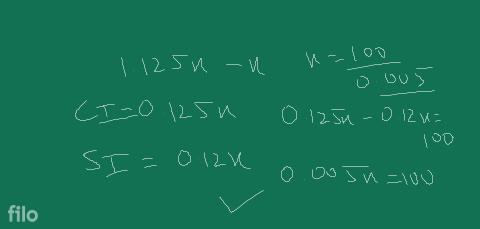 1.125x - x
CI = 0.125x
SI = 0.12x
x = 100
0.005
0.125x - 0.12x =
100
0.005x = 100
filo